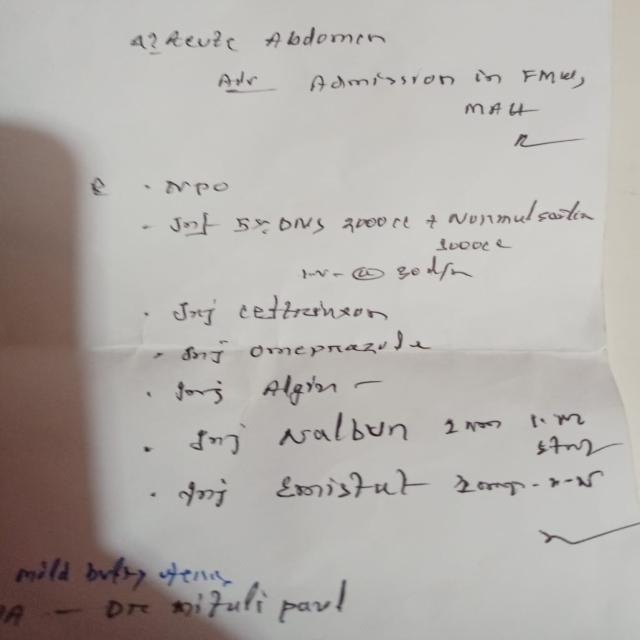 a? Acute Abdomen
Adv Admission in FMW,
MAH
· NPO
· Inf 5% DNS 2000cc + Normal saline
1000cc
I.V. @ 30 d/m
· Inj ceftriaxon
· Inj omeprazole
· Inj Algin –
· Inj Nalbun 2 I.M
stat
· Inj Emistat
mild
– Dr mituli paul